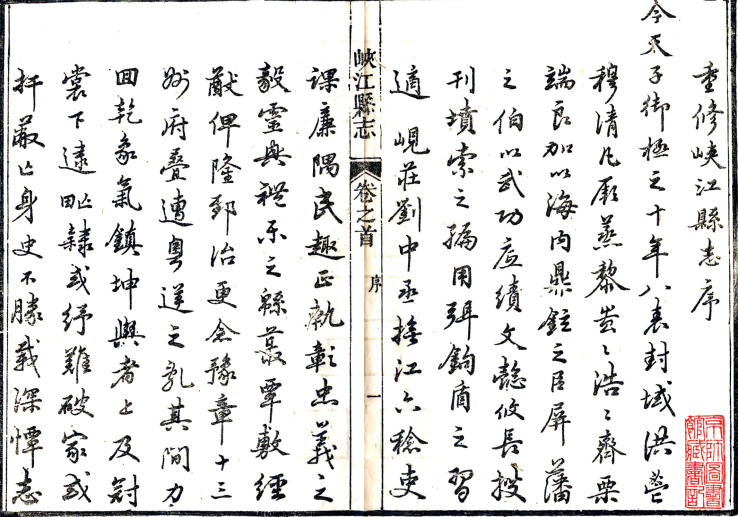 重修峽江縣志序
今天子御極之十年八表封域洪瀛
穆清凡厥蒸黎蚩蚩浩浩齊栗
端良加以海內鼎鉉之臣屏藩
之伯以武功底績文懿攸長授
刊墳索之編用弭鉤盾之習
適峴莊劉中丞撫江六稔吏
峽江縣志
卷之首
序
一
課廉隅民趣正執彰忠義之
毅靈興禮樂之緜蕞覃敷經
猷俾隆郅治更念豫章十三
州府疊遭粵逆之亂其間力
回乾象氣鎮坤輿者上及冠
裳下逮甿隸或紓難破家或
扞敵亡身史不勝載深懼志